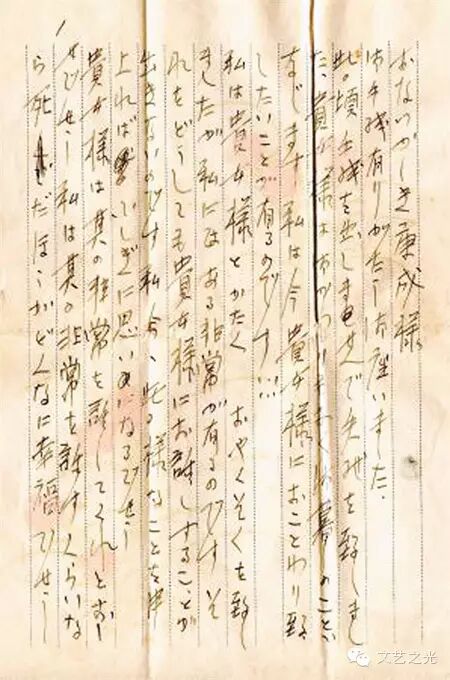 おなつかしき康成様。
お手紙有りがたう御座いました。
此の頃手紙を出しませんで失礼を致しまし
た。貴方様はおかわりもなくお暮しのことゝ
存じます。私は今、貴方様におことわり致
したいことが有るのです…。
私は貴方様とかたく おやくそくを致し
ましたが、私にはある非常が有るのです。そ
れをどうしても貴方様にお話しすることが
出きないのです。私今、此の様なことを申
上れば ふしぎに思いめになるでせう。
貴方様は其の非常を話してくれとおっ
しゃるでせう。私は其の非常を話すくらいな
ら死 んだほうがどんなに幸福でせう。
文艺之光